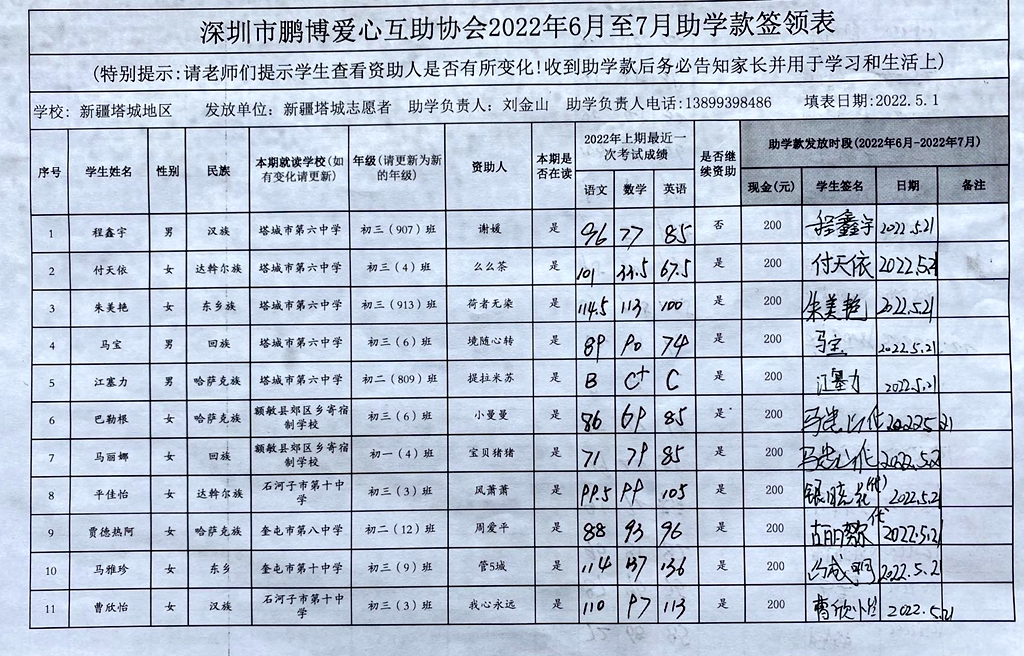 深圳市鹏博爱心互助协会2022年6月至7月助学款签领表
(特别提示:请老师们提示学生查看资助人是否有所变化!收到助学款后务必告知家长并用于学习和生活上)
学校: 新疆塔城地区 发放单位: 新疆塔城志愿者 助学负责人: 刘金山 助学负责人电话:13899398486 填表日期:2022.5.1
序号 学生姓名 性别 民族 本期就读学校(如有变化请更新) 年级(请更新为新的年级) 资助人 本期是否在读 2022年上期最近一次考试成绩 是否继续资助 助学款发放时段(2022年6月-2022年7月)
语文 数学 英语 现金(元) 学生签名 日期 备注
1 程鑫宇 男 汉族 塔城市第六中学 初三(907)班 谢媛 是 96 77 85 否 200 程鑫宇 2022.5.21
2 付天依 女 达斡尔族 塔城市第六中学 初三(4)班 么么茶 是 101 33.5 67.5 是 200 付天依 2022.5.21
3 朱美艳 女 东乡族 塔城市第六中学 初三(913)班 荷者无染 是 114.5 113 100 是 200 朱美艳 2022.5.21
4 马宝 男 回族 塔城市第六中学 初三(6)班 境随心转 是 89 90 74 是 200 马宝 2022.5.21
5 江塞力 男 哈萨克族 塔城市第六中学 初二(809)班 提拉米苏 是 B C+ C 是 200 江塞力 2022.5.21
6 巴勒根 女 哈萨克族 额敏县郊区乡寄宿制学校 初三(6)班 小曼曼 是 86 69 85 是 200 代 2022.5.21
7 马丽娜 女 回族 额敏县郊区乡寄宿制学校 初一(4)班 宝贝猪猪 是 71 79 85 是 200 代 2022.5.21
8 平佳怡 女 达斡尔族 石河子市第十中学 初三(3)班 风萧萧 是 99.5 99 105 是 200 银晓花(代) 2022.5.21
9 贾德热阿 女 哈萨克族 奎屯市第八中学 初二(12)班 周爱平 是 88 93 96 是 200 代 2022.5.21
10 马雅珍 女 东乡 奎屯市第十中学 初三(9)班 管5城 是 114 137 136 是 200 2022.5.21
11 曹欣怡 女 汉族 石河子市第十中学 初三(3)班 我心永远 是 110 97 113 是 200 曹欣怡 2022.5.21